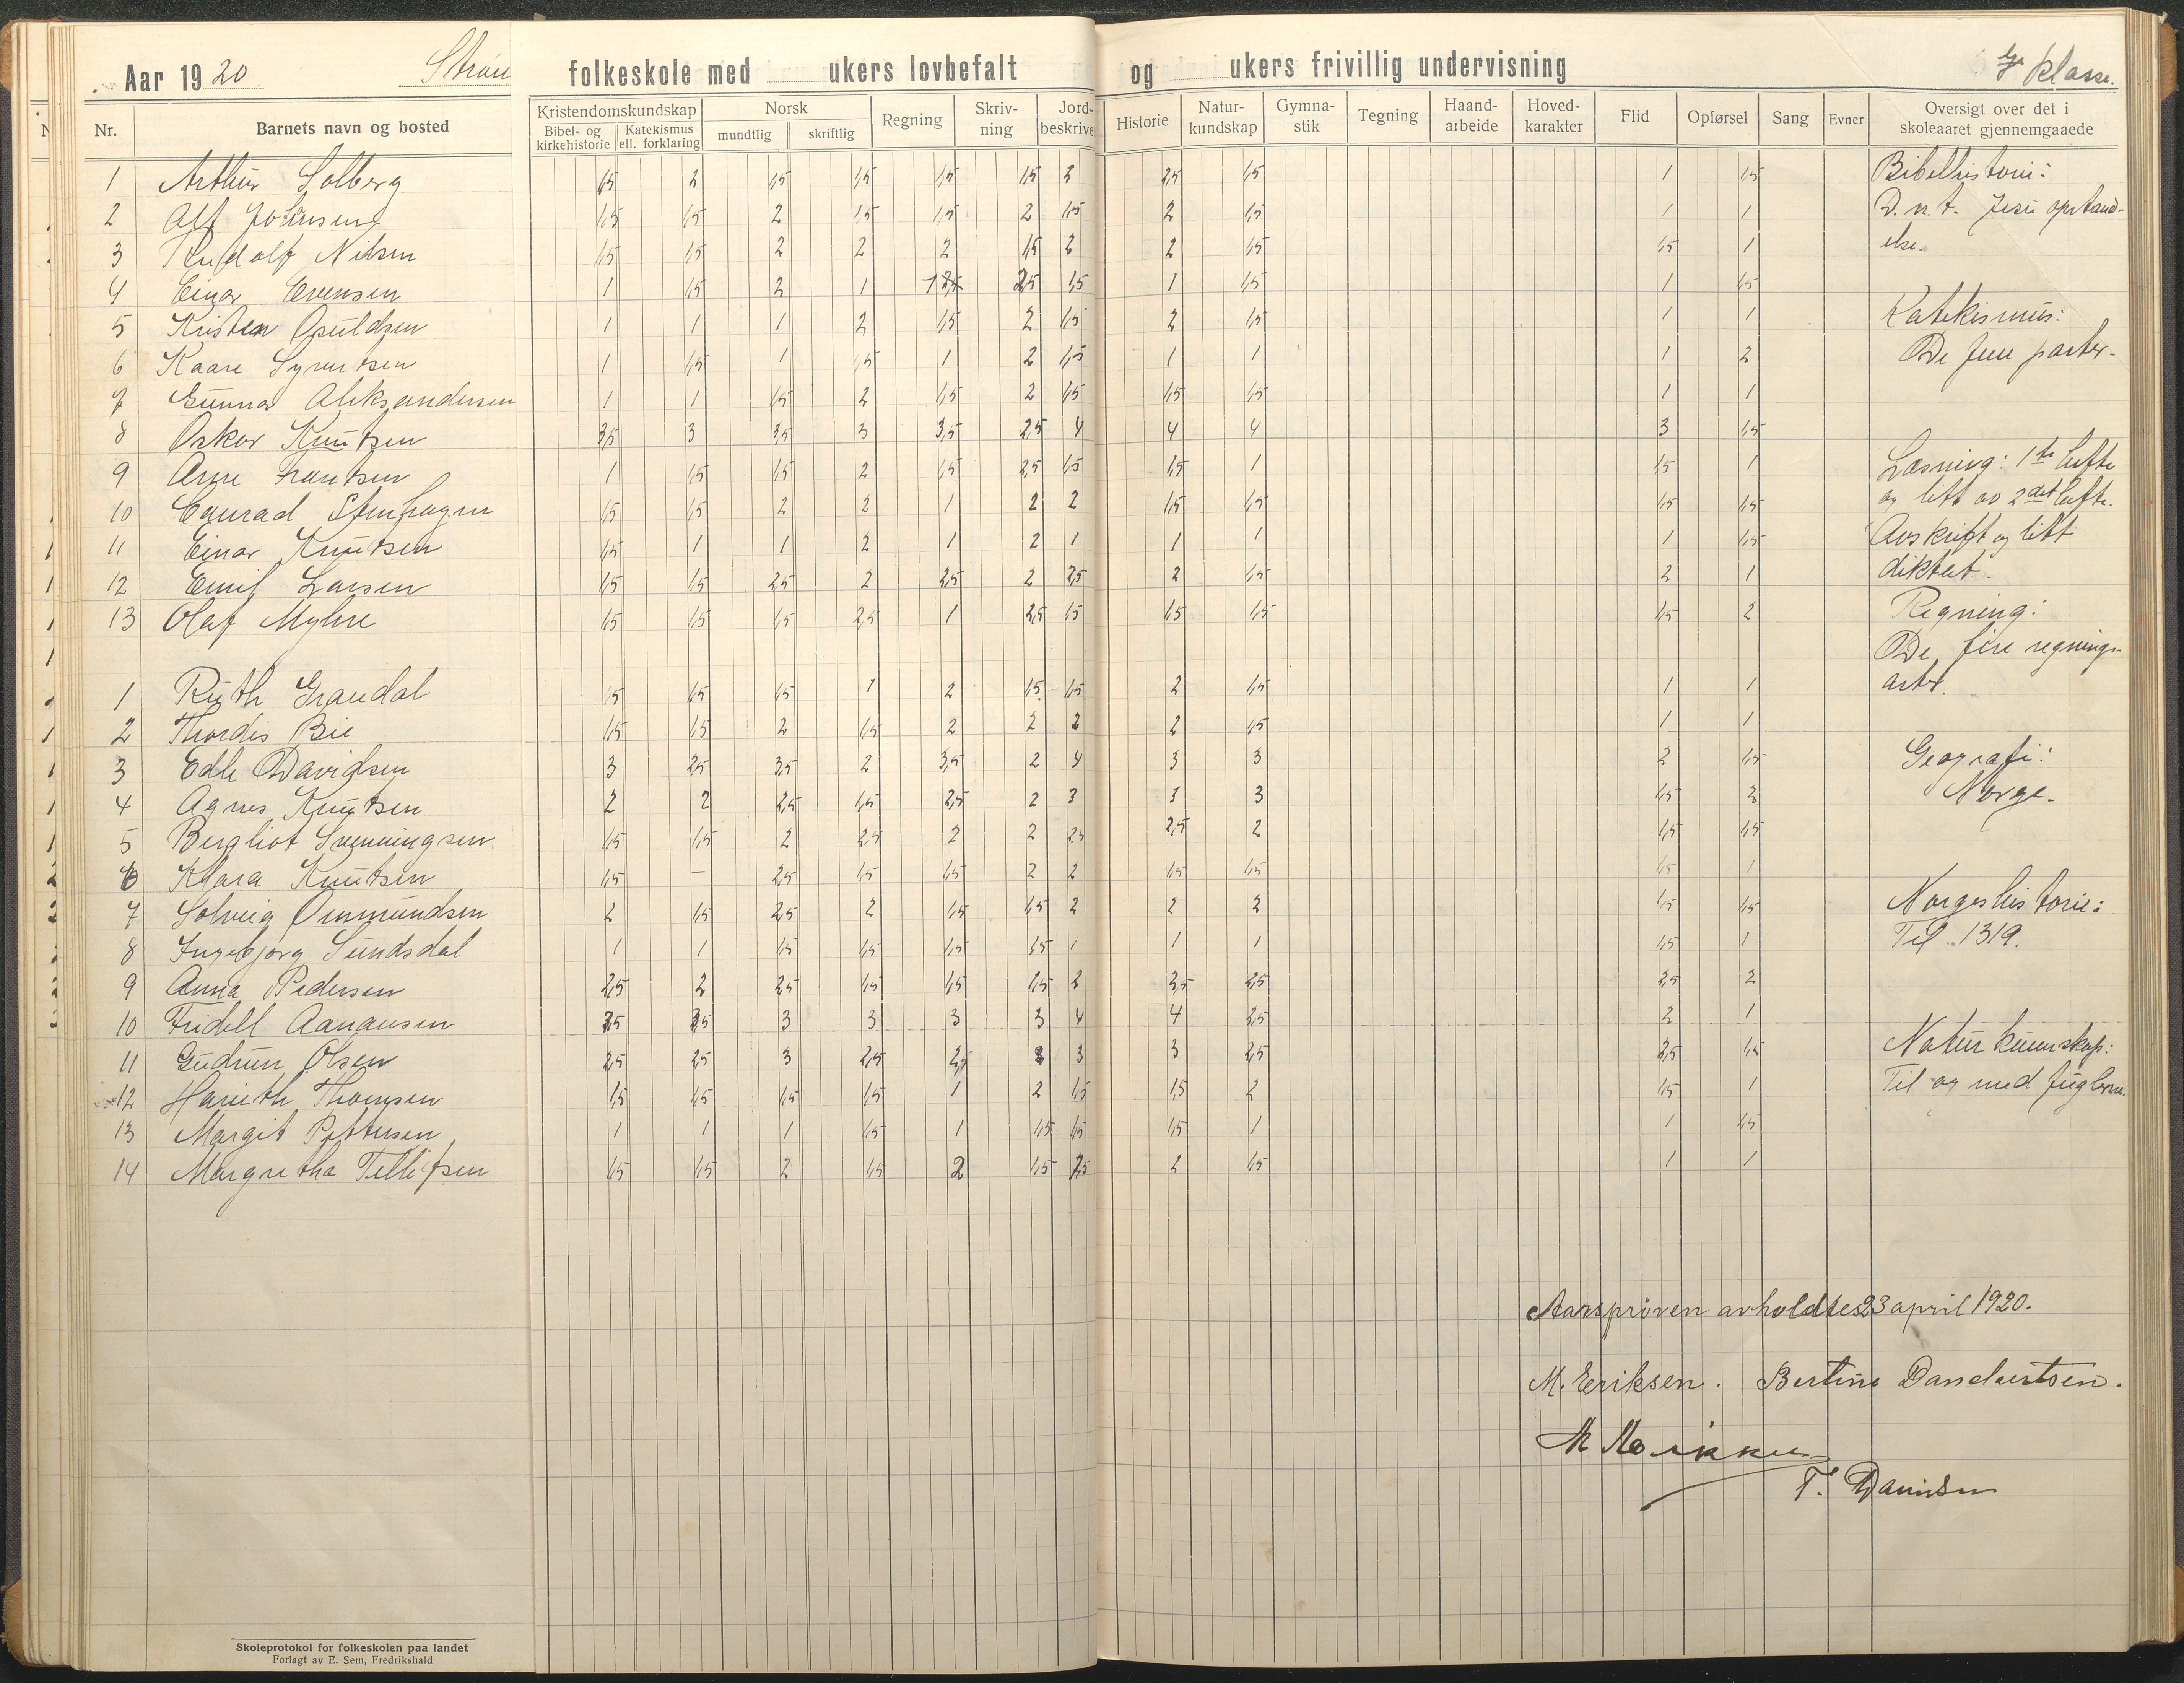 Aar 1920 folkeskole med ukers lovbefalt og ukers frivillig undervisning klasse.
Nr. Barnets navn og bosted Kristendomskundskap Bibel- og kirkehistorie Katekismus ell. forklaring Norsk mundtlig skriftlig Regning Skriv-ning Jord-beskrive Historie Natur-kundskap Gymna-stik Tegning Haand-arbeide Hoved-karakter Flid Opførsel Sang Evner Oversigt over det i skoleaaret gjennemgaaede
1 Arthur Solberg 1,5 2 1,5 1,5 1,5 1,5 2 2,5 1,5 1 1,5 Bibelhistorie:
2 Alf Johnsen 1,5 1,5 2 1,5 1,5 2 1,5 2 1,5 1 1 D.n.t. Jesu opstand-
3 Rudolf Nilsen 1,5 1,5 2 2 2 1,5 2 2 1,5 1,5 1 else.
4 Einar Evensen 1 1,5 2 1 1 2,5 1,5 1 1,5 1 1,5
5 Kristen Osuldsen 1 1 1 2 1,5 2 1,5 2 1,5 1 1 Katekismus:
6 Kaare Syvertsen 1 1,5 1 1,5 1 2 1,5 1 1 1 2 De fem parter.
7 Gunnar Aleksandersen 1 1 1,5 2 1,5 2 1,5 1,5 1,5 1 1
8 Oskar Knutsen 3,5 3 3,5 3 3,5 2,5 4 4 4 3 1,5
9 Arne Frantsen 1 1,5 1,5 2 1,5 2,5 1,5 1,5 1 1,5 1 Læsning: 1ste hefte
10 Conrad Stenhagen 1,5 1,5 2 2 1 2 2 1,5 1,5 1,5 1,5 og litt av 2det hefte.
11 Einar Knutsen 1,5 1 1 2 1 2 1 1 1 1 1,5 Avskrift og litt
12 Emil Larsen 1,5 1,5 2,5 2 2,5 2 2,5 2 1,5 2 1 diktat.
13 Olaf Myhre 1,5 1,5 1,5 2,5 1 2,5 1,5 1,5 1,5 1,5 2 Regning:
De fire regnings-
1 Ruth Grandal 1,5 1,5 1,5 1 2 1,5 1,5 2 1,5 1 1 arter.
2 Thordis Bie 1,5 1,5 2 1,5 2 2 2 2 1,5 1 1
3 Edle Davidsen 3 2,5 3,5 2 3,5 2 4 3 3 2 1,5 Geografi:
4 Agnes Knutsen 2 2 2,5 1,5 2,5 2 3 3 3 1,5 2 Norge.
5 Bergliot Svenningsen 1,5 1,5 2 2,5 2 2 2,5 2,5 2 1,5 1,5
6 Klara Knutsen 1,5 — 2,5 1,5 1,5 2 2 1,5 1,5 1,5 1
7 Solveig Ommundsen 2 1,5 2,5 2 1,5 1,5 2 2 2 1,5 1,5 Norgeshistorie:
8 Ingebjorg Sundsdal 1 1 1,5 1,5 1,5 1,5 1 1 1 1,5 1 Til 1319.
9 Anna Pedersen 2,5 2 2,5 1,5 1,5 1,5 2 2,5 2,5 2,5 2
10 Fridell Aanansen 3,5 3,5 3 3 3 3 4 4 3,5 2 1
11 Gudrun Olsen 2,5 2,5 3 2,5 2,5 2 3 3 2,5 2,5 1,5 Naturkunnskap:
12 Harieth Thomsen 1,5 1,5 1,5 1,5 1 2 1,5 1,5 2 1,5 1 Til og med fuglene.
13 Margit Pettersen 1 1 1 1,5 1 1,5 1,5 1,5 1 1 1,5
14 Margretha Tellefsen 1,5 1,5 2 1,5 2 1,5 2,5 2 1,5 1 1
Aarsprøven avholdtes 23 april 1920.
M. Eriksen. Bertine Danelsen.
T. Danielsen
Skoleprotokol for folkeskolen paa landet
Forlagt av E. Sem, Fredrikshald